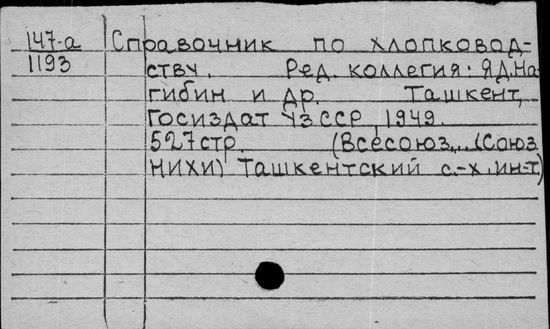 147-а Справочник по хлопковод-
1193 ству. Ред. коллегия: Я.Д. На-
гибин и др. Ташкент,
Госиздат УзССР, 1949.
527 стр. (Всесоюз... (Союз
НИХИ) Ташкентский с.-х. ин-т)